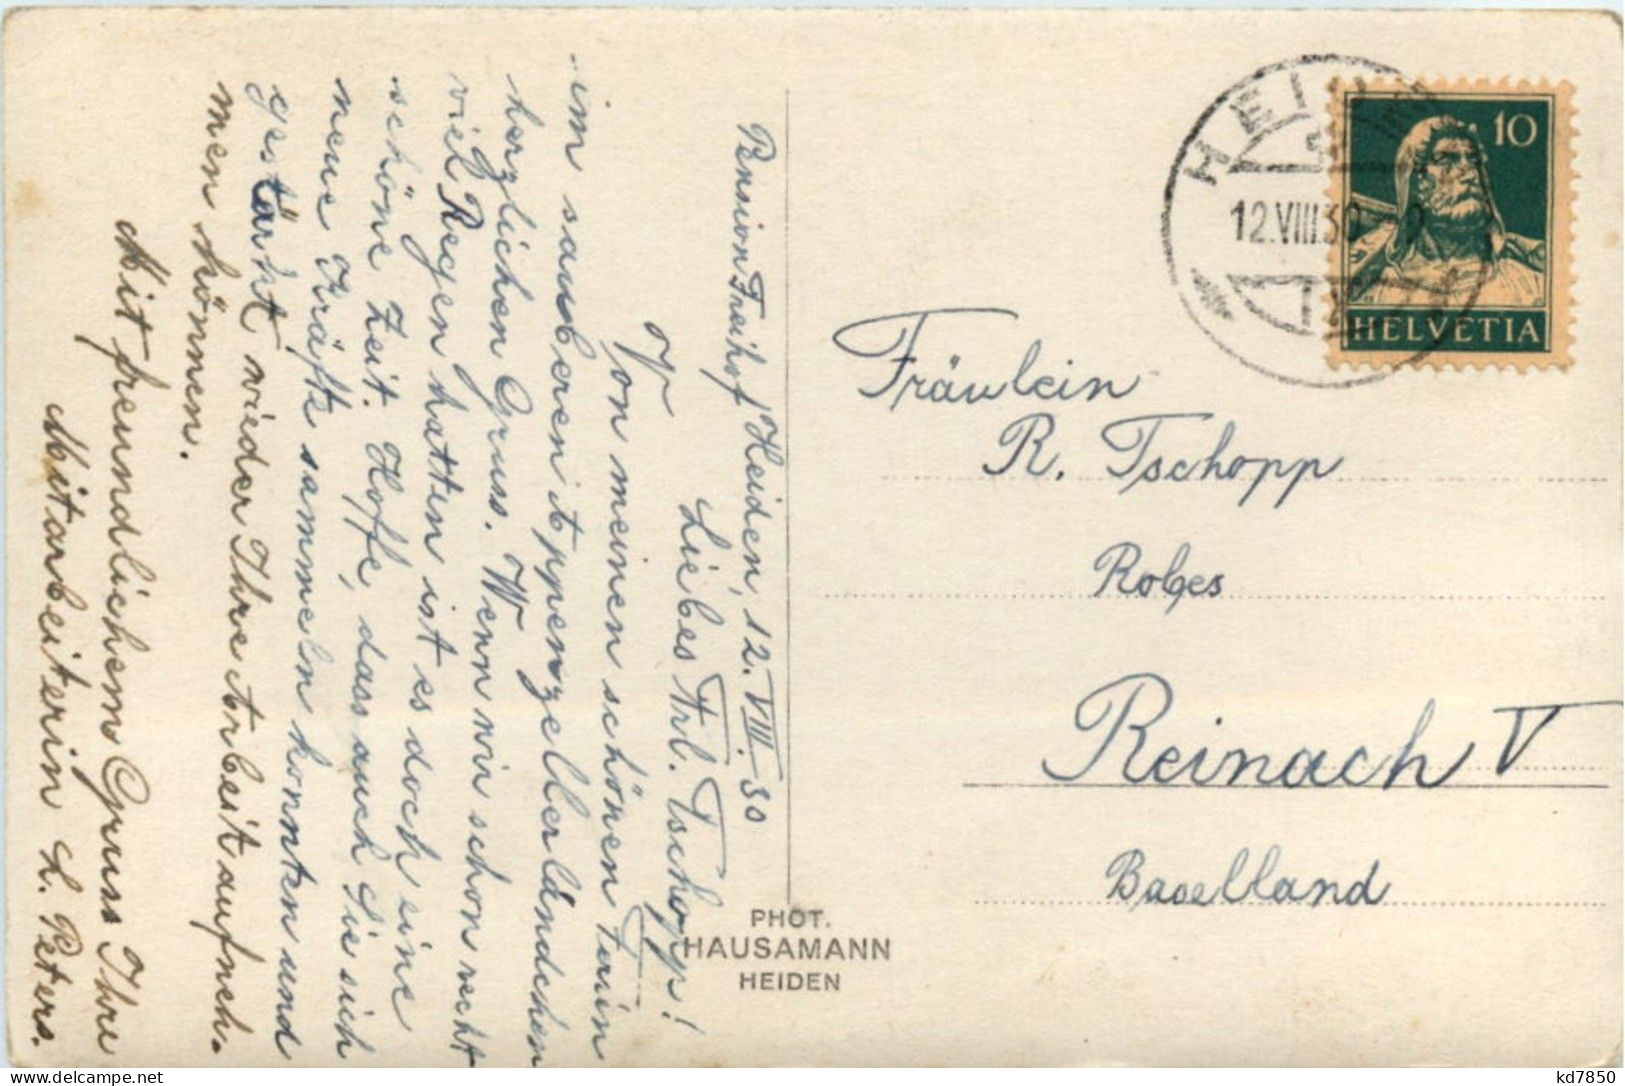 Pension Freihof Heiden, 12. VIII. 30
Liebes Frl. Tschopp!
Von meinen schönen Ferien
im sauberen Appenzellerländchen
herzlichen Gruss. Wenn wir schon recht
viel Regen hatten ist es doch eine
schöne Zeit. Hoffe, dass auch Sie sich
neue Kräfte sammeln konnten und
gestärkt wieder Ihre Arbeit aufneh-
men können.
Mit freundlichem Gruss Ihre
Mitarbeiterin L. Peters.
PHOT.
HAUSAMANN
HEIDEN
HEIDEN
12.VIII.30
10
HELVETIA
Fräulein
R. Tschopp
Robes
Reinach V
Baselland
kd7850